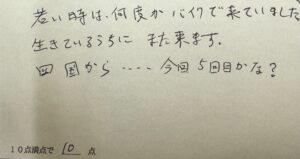 若い時は、何度かバイクで来ていました
生きているうちに また来ます.
四国から ‥‥‥ 今回5回目かな？
10点満点で 10 点